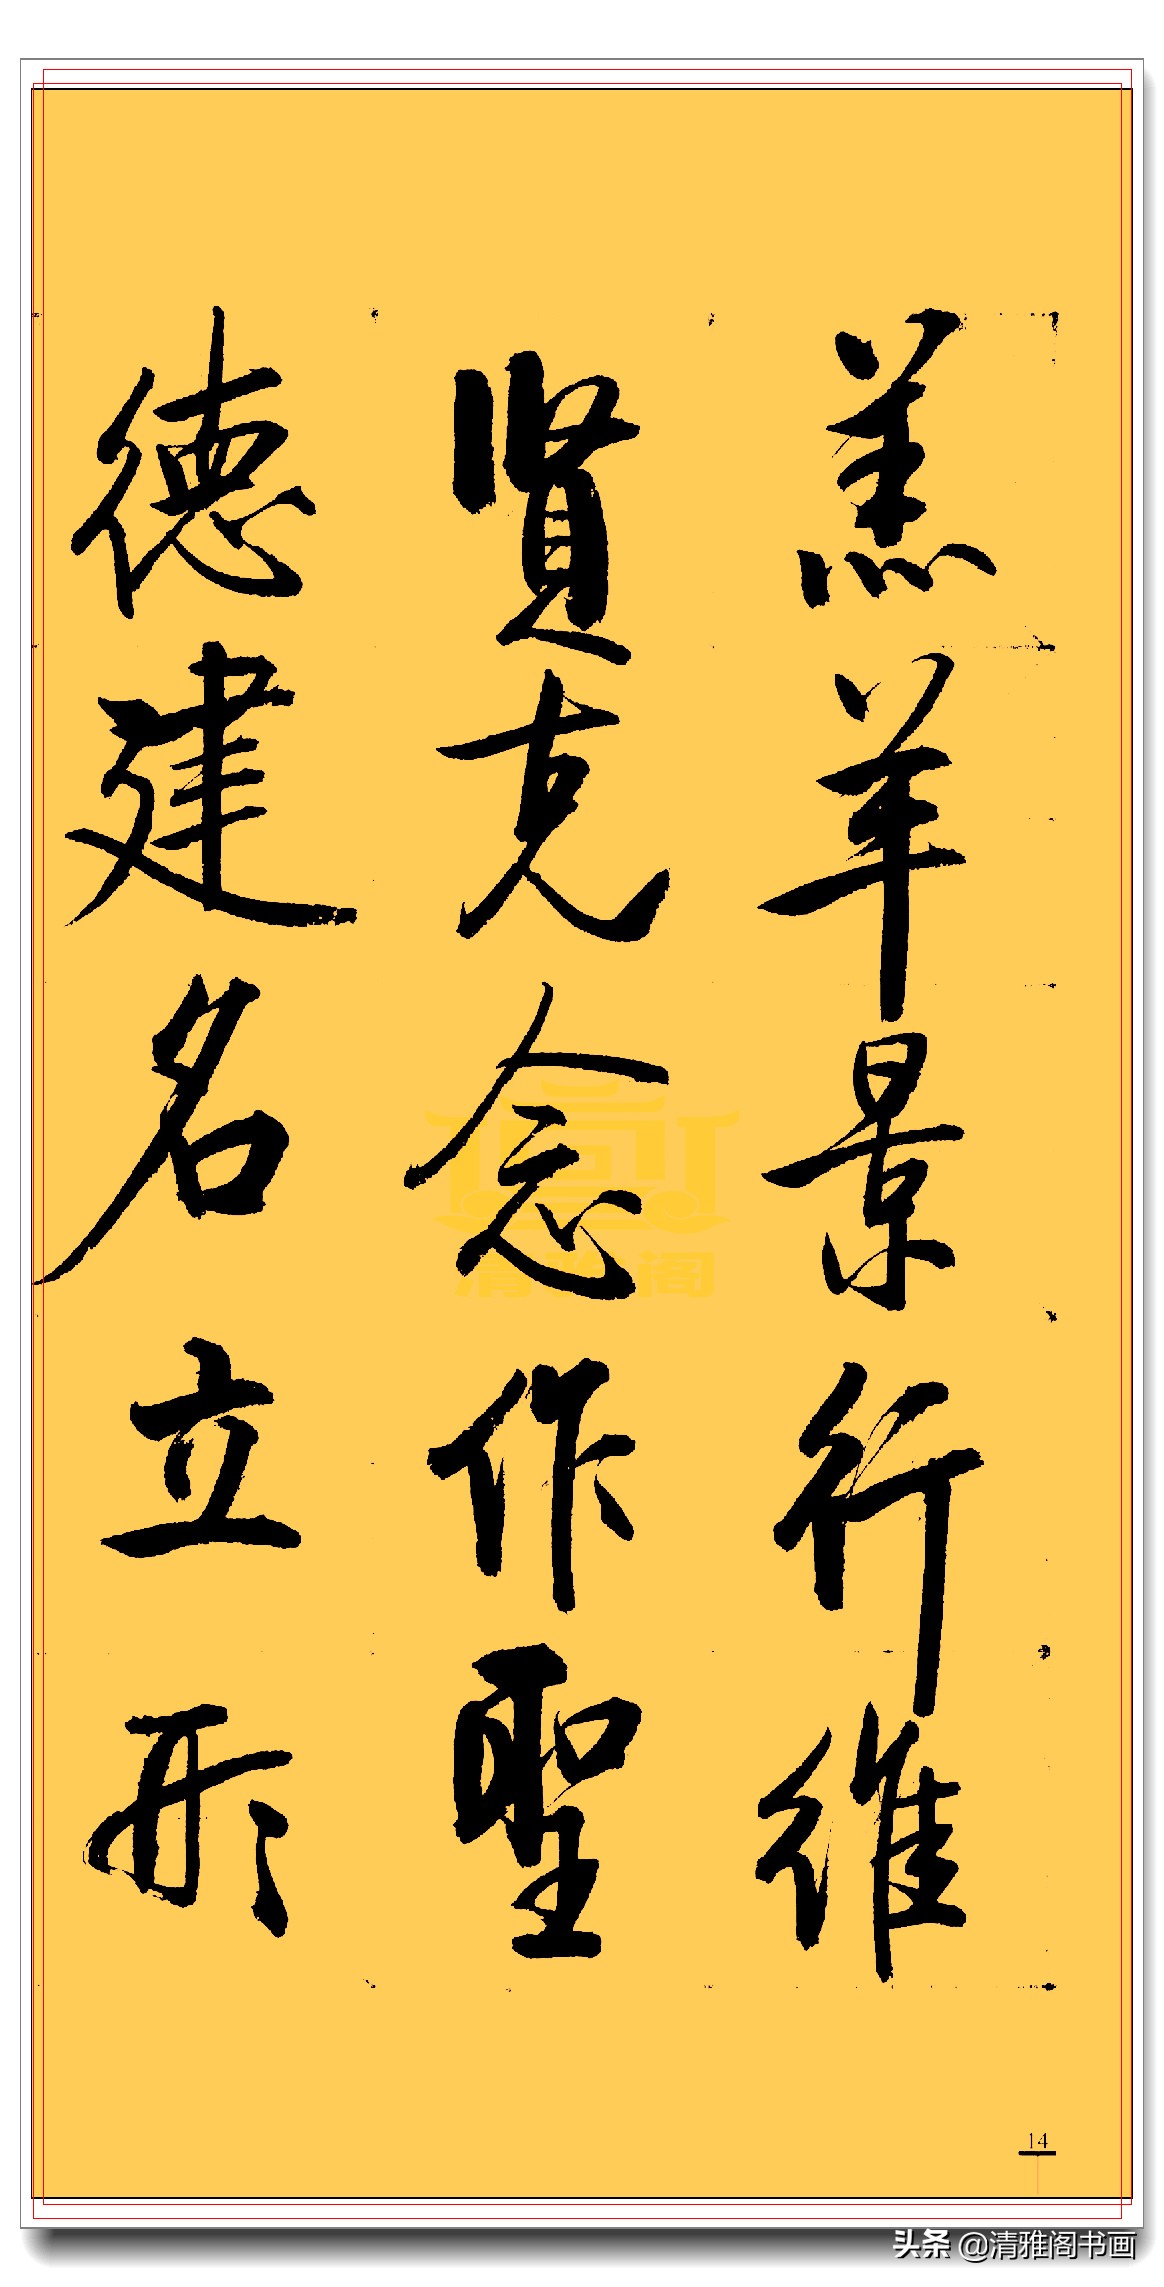 羔羊景行維
賢克念作聖
德建名立形
清雅阁
14
头条 @清雅阁书画